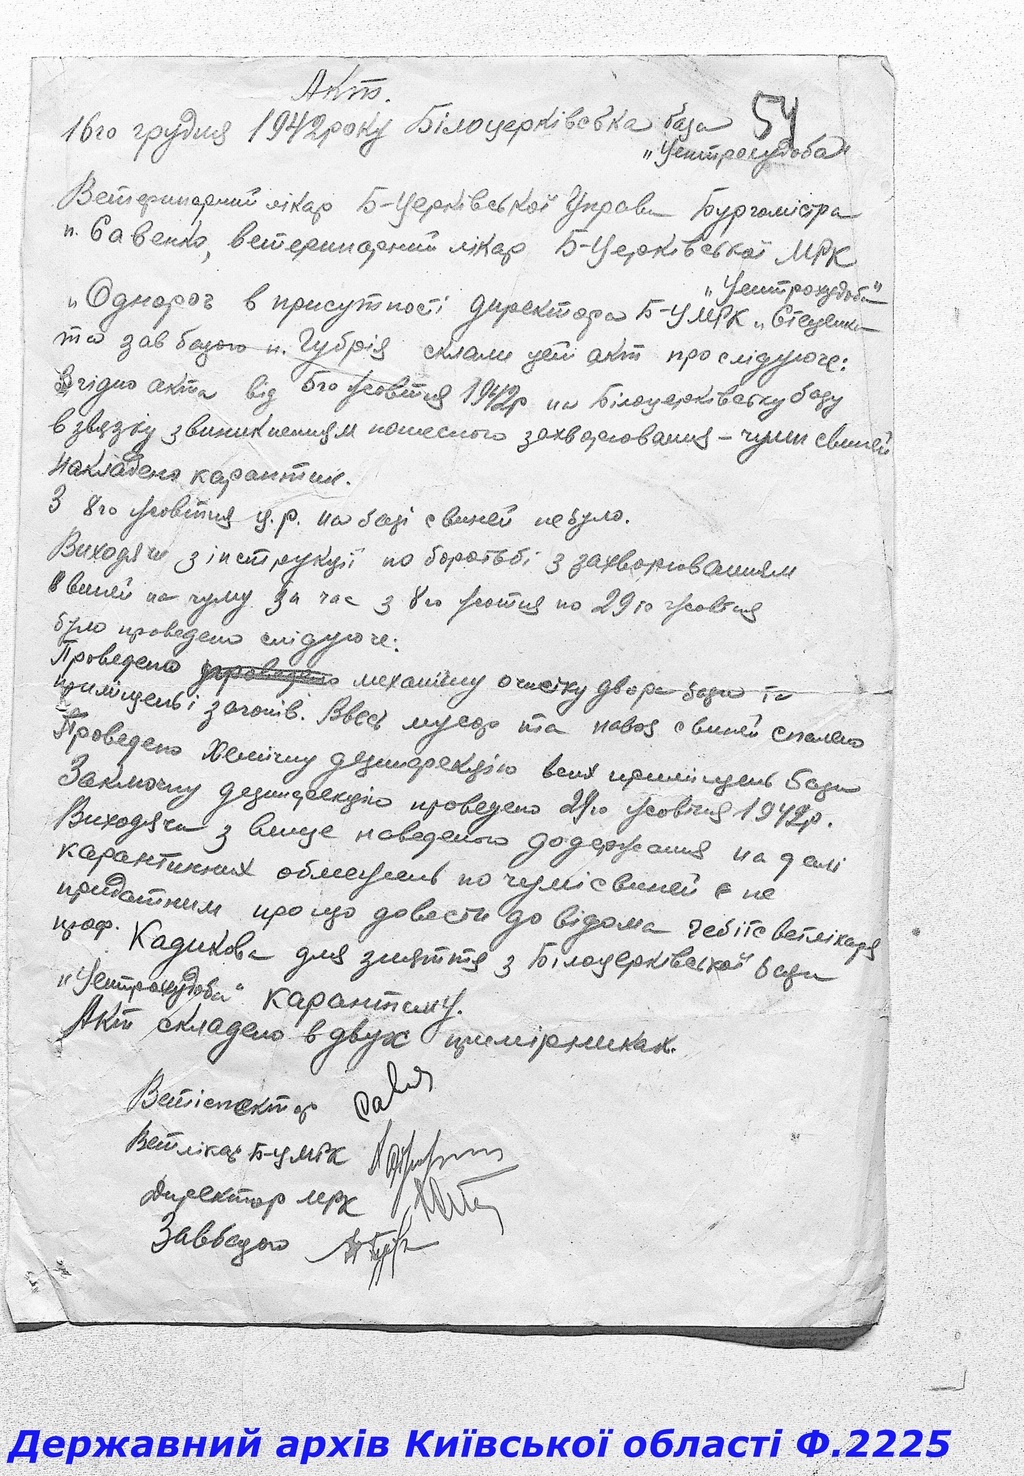 Акт.
54
16го грудня 1942 року Білоцерківська база
„Центрохудоба"
Ветеринарний лікар Б-Церківської Управи Бургомістра
п. Савенко, ветеринарний лікар Б-Церківської МРК
„Центрохудоба"
в присутності директора Б-ЦМРК п. Стеценка
та завбазою п. Губрія склали цей акт про слідуюче:
Згідно акта від 5го жовтня 1942р на Білоцерківську базу
в звязку з виникненням пошесного захворювання – чуми свиней
накладено карантин.
З 8го жовтня ц.р. на базі свиней небуло.
Виходячи з інструкції по боротьбі з захворюванням
свиней на чуму за час з 8го жовтня по 29го жовтня
було проведено слідуюче:
Проведено механічну очистку двора бази та
приміщень і загонів. Ввесь мусор та навоз свиней спалено
Проведено хемічну дезинфекцію всих приміщень бази
Заключну дезинфекцію проведено 29го жовтня 1942р.
Виходячи з вище наведеного додержання на далі
карантинних обмежень по чумі свиней є не
придатним про що довести до відома ветлікаря
проф. Кадикова для зняття з Білоцерківської бази
„Центрохудоба" карантину.
Акт складено в двух примірниках.
Ветінспектор
Ветлікар Б-ЦМРК
Директор МРК
Завбазою
Державний архів Київської області Ф.2225